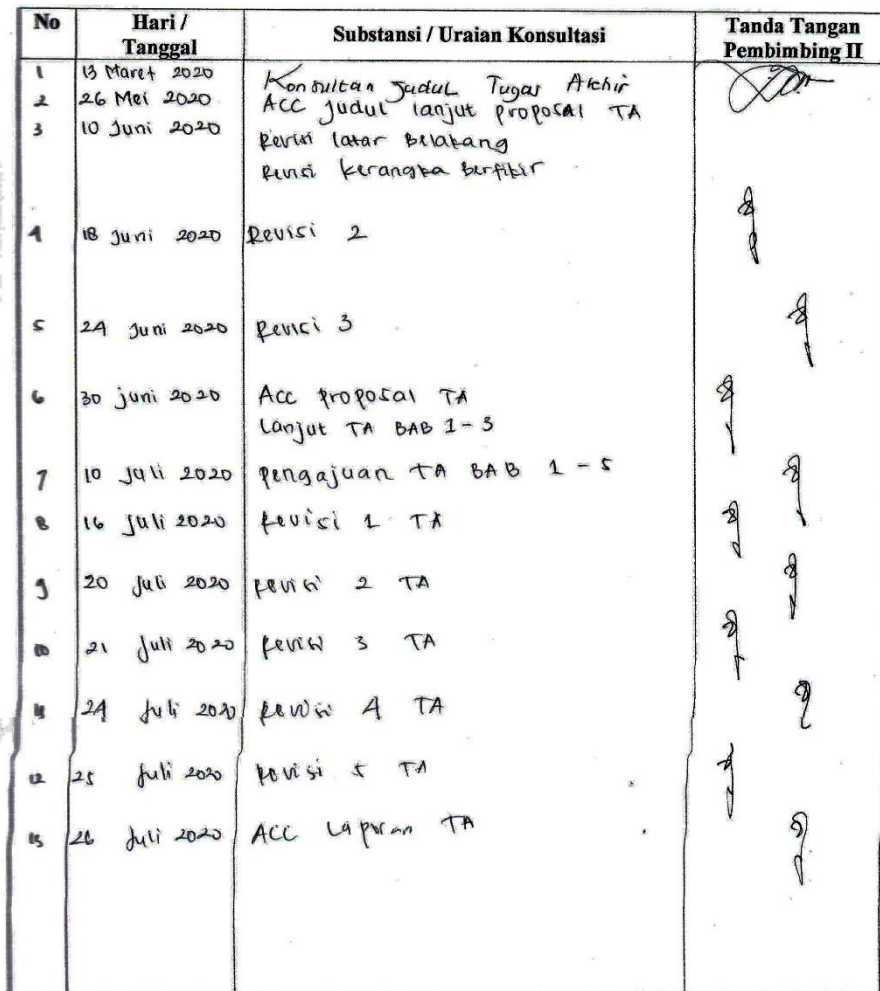 No Hari / Tanggal Substansi / Uraian Konsultasi Tanda Tangan Pembimbing II
1 13 Maret 2020 Konsultan Judul Tugas Akhir
2 26 Mei 2020 ACC Judul lanjut proposal TA
3 10 Juni 2020 Revisi latar Belakang
Revisi kerangka Berfikir
4 18 Juni 2020 Revisi 2
5 24 Juni 2020 Revisi 3
6 30 juni 2020 Acc proposal TA
Lanjut TA BAB 1-3
7 10 Juli 2020 pengajuan TA BAB 1-5
8 16 Juli 2020 Revisi 1 TA
9 20 Juli 2020 revisi 2 TA
10 21 Juli 2020 revisi 3 TA
11 24 Juli 2020 revisi 4 TA
12 25 Juli 2020 revisi 5 TA
13 26 Juli 2020 ACC Laporan TA